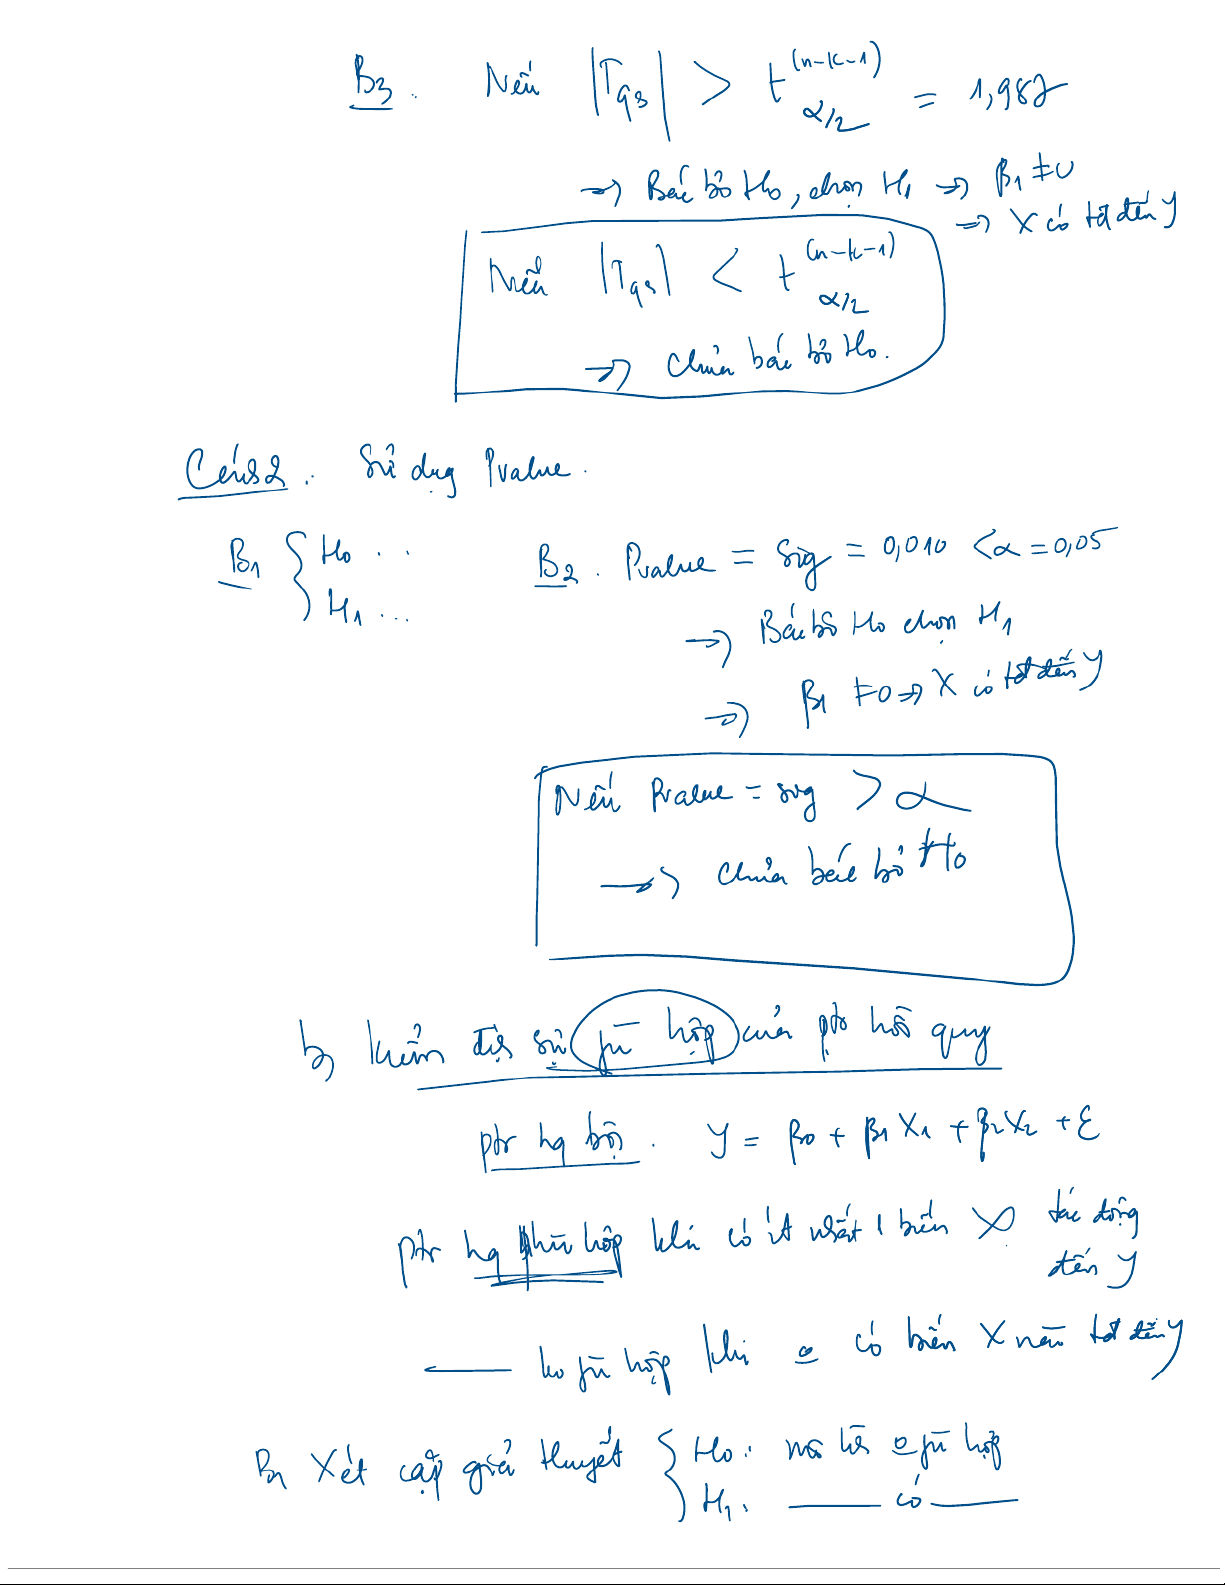 B3. Nếu |Tqs| > t^(n-k-1)_α/2 = 1,987
→ Bác bỏ H0, chọn H1 → β1 ≠ 0
→ X có tđ đến Y
Nếu |Tqs| < t^(n-k-1)_α/2
→ Chưa bác bỏ H0.
Cách 2. Sử dụng Pvalue.
B1 { H0 ...
H1 ...
B2. Pvalue = Sig = 0,010 < α = 0,05
→ Bác bỏ H0 chọn H1
→ β1 ≠ 0 → X có tđ đến Y
Nếu Pvalue = sig > α
→ Chưa bác bỏ H0
b, Kiểm địh sự fù hợp của ptr hồi quy
ptr hq bội. Y = β0 + β1X1 + β2X2 + ε
ptr hq phù hợp khi có ít nhất 1 biến X tác động
đến Y
—— ko fù hợp khi o có biến X nào tđ đến Y
B1 Xét cặp giả thuyết { H0: mô hh o fù hợp
H1: —— có ——